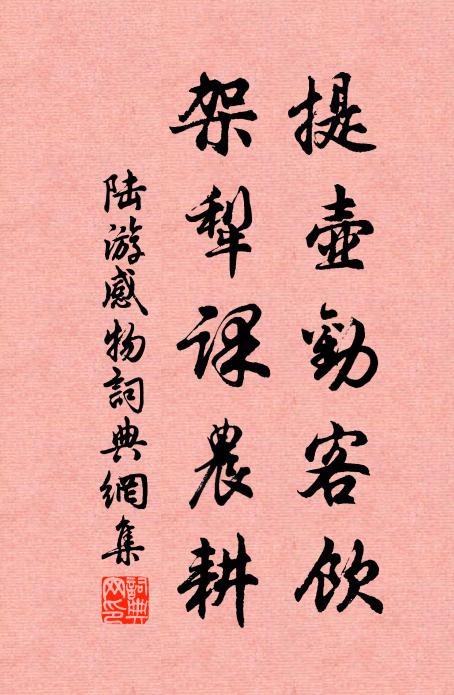 提壺勸客飲
架犁課農耕
陆游感物詞典網集
詞典網印